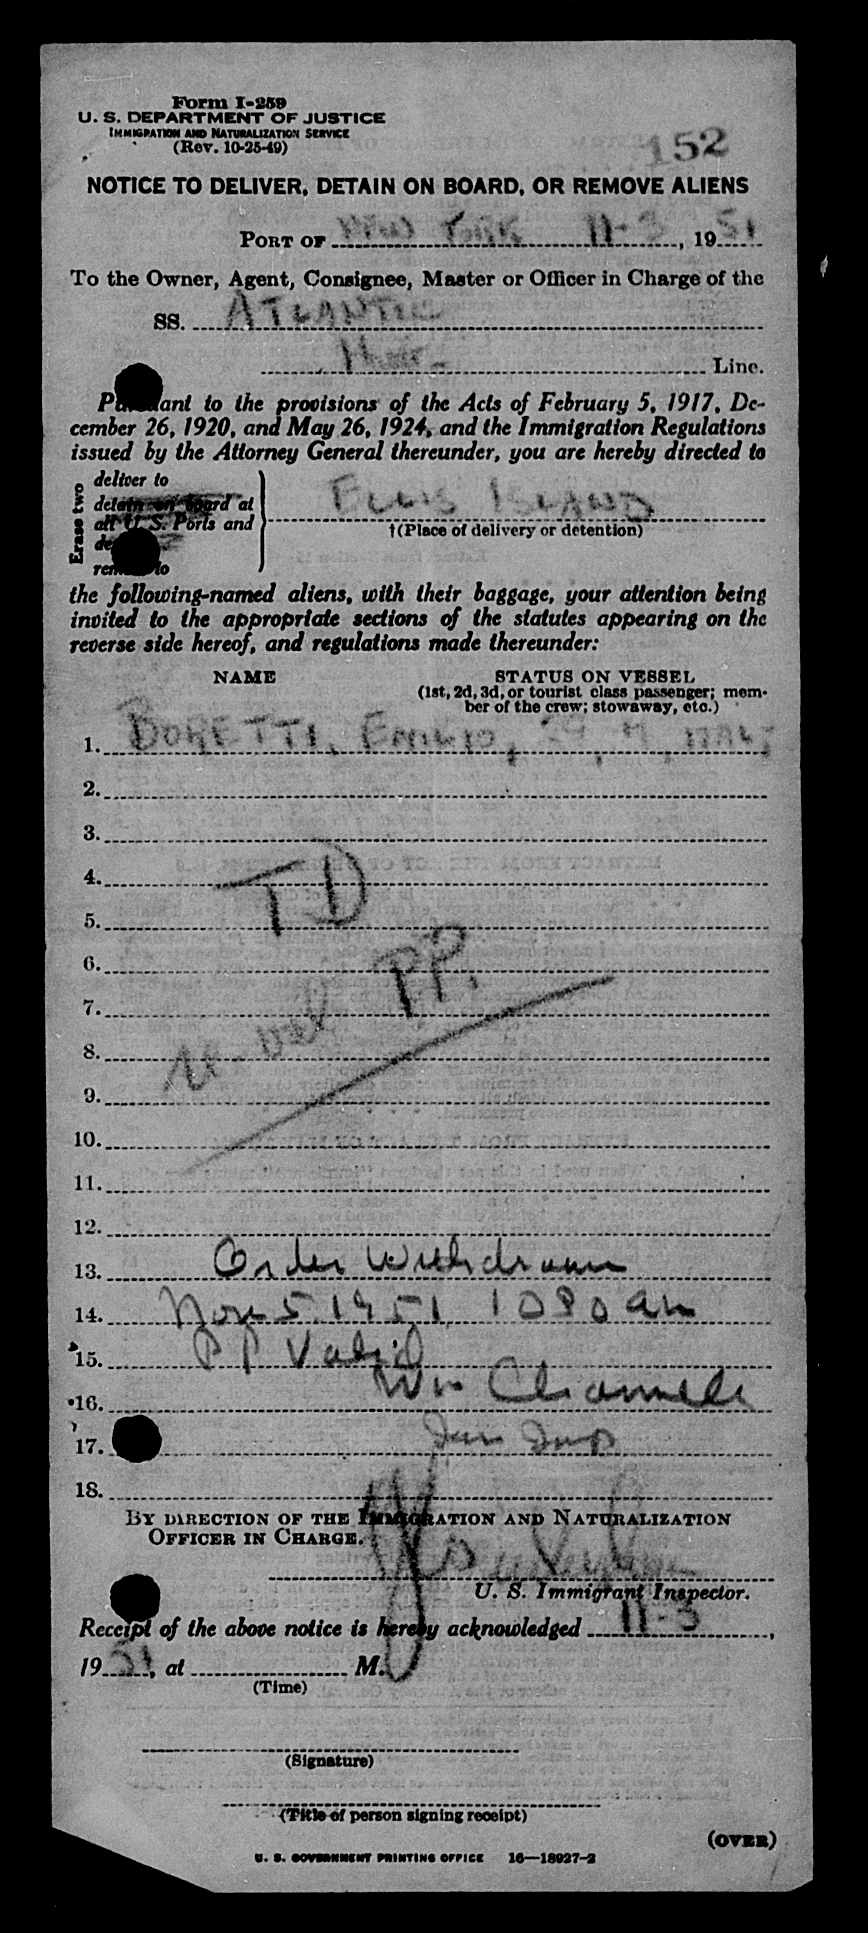 Form I-259
U. S. DEPARTMENT OF JUSTICE
IMMIGRATION AND NATURALIZATION SERVICE
(Rev. 10-25-49)
152
NOTICE TO DELIVER, DETAIN ON BOARD, OR REMOVE ALIENS
PORT OF NEW YORK 11-3, 1951
To the Owner, Agent, Consignee, Master or Officer in Charge of the
SS. ATLANTIC
Line.
Pursuant to the provisions of the Acts of February 5, 1917, De-
cember 26, 1920, and May 26, 1924, and the Immigration Regulations
issued by the Attorney General thereunder, you are hereby directed to
Erase two
deliver to
detain on board at
all U. S. Ports and
remove to
ELLIS ISLAND
†(Place of delivery or detention)
the following-named aliens, with their baggage, your attention being
invited to the appropriate sections of the statutes appearing on the
reverse side hereof, and regulations made thereunder:
NAME STATUS ON VESSEL
(1st, 2d, 3d, or tourist class passenger; mem-
ber of the crew; stowaway, etc.)
1. BORETTI, EMILIO, 29, M, ITALY
2.
3.
4. TD
5.
6. PP.
7.
8.
9.
10.
11.
12.
13. Order Withdrawn
14. Nov 5. 1951 1030 am
15. PP Valid
16. Wm
17. Imm Insp
18.
BY DIRECTION OF THE IMMIGRATION AND NATURALIZATION
OFFICER IN CHARGE.
U. S. Immigrant Inspector.
Receipt of the above notice is hereby acknowledged 11-3,
1951, at M.
(Time)
(Signature)
(Title of person signing receipt)
(OVER)
U. S. GOVERNMENT PRINTING OFFICE 16—18927-2